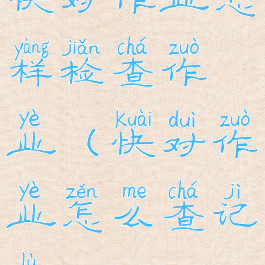 快对作业怎
yàng jiǎn chá zuò
样检查作
yè kuài duì zuò
业（快对作
yè zěn me chá jì
业怎么查记
lù